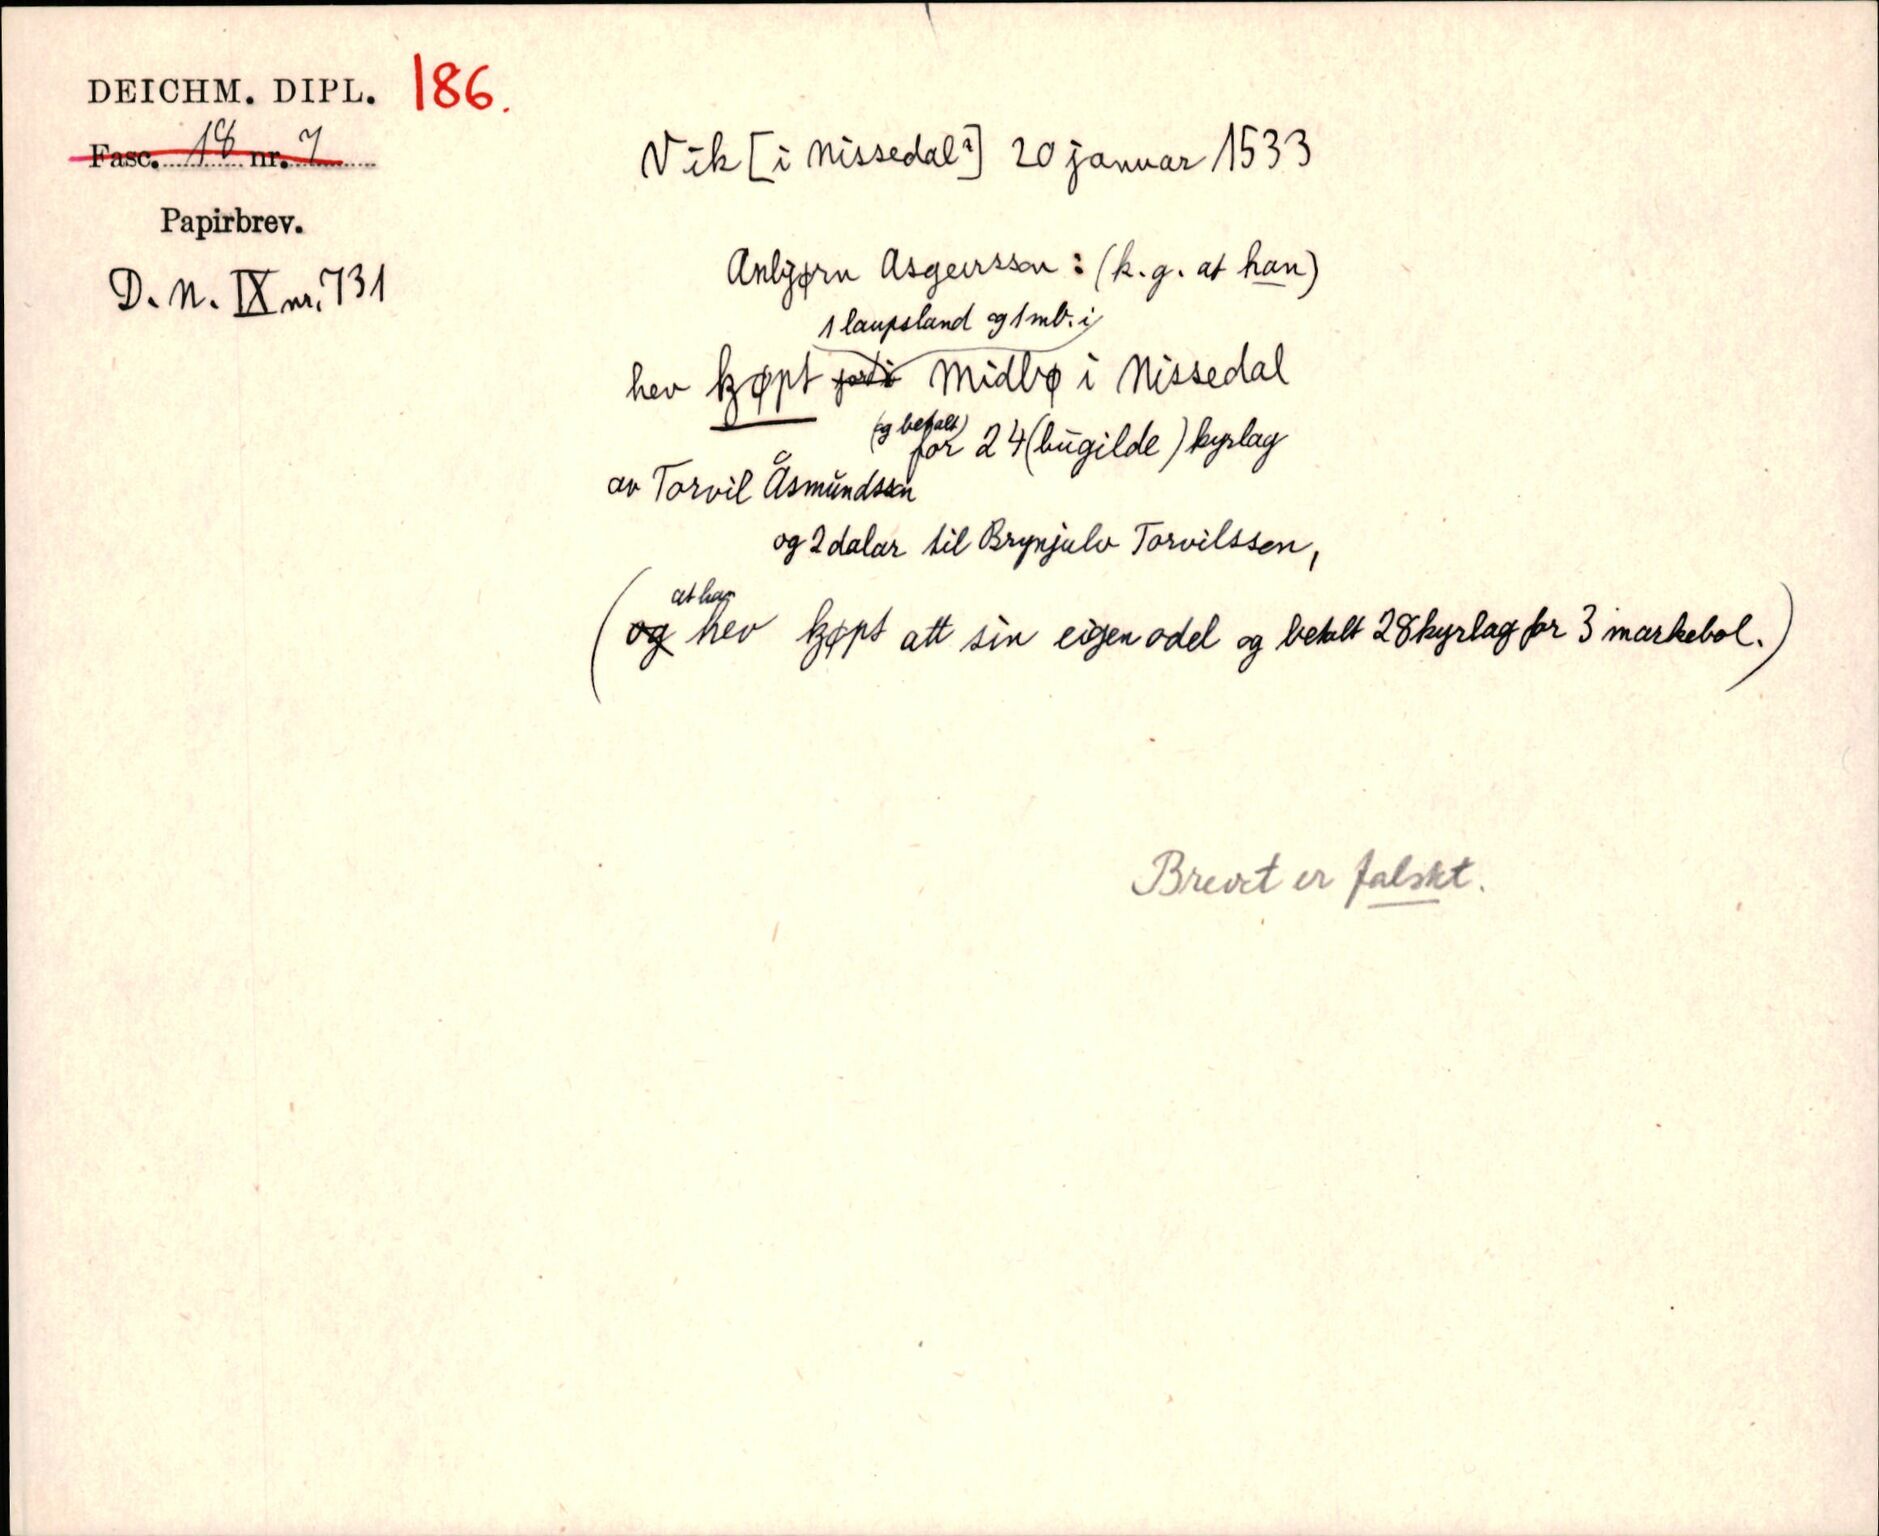 DEICHM. DIPL. 186.
Fasc. 18 nr. 7
Papirbrev.
D. N. IX nr. 731
Vik [i Nissedal?] 20 januar 1533
Anbjørn Asgeirsson : (k. g. at han)
1 laupsland og 1 mb. i
hev kjøpt jord i Midbø i Nissedal
(og betalt)
for 24 (bugilde) kyrlag
av Torvil Åsmundsson
og 2 dalar til Brynjulv Torvilsson,
at han
(og hev kjøpt att sin eigen odel og betalt 28 kyrlag for 3 markebol.)
Brevet er falskt.